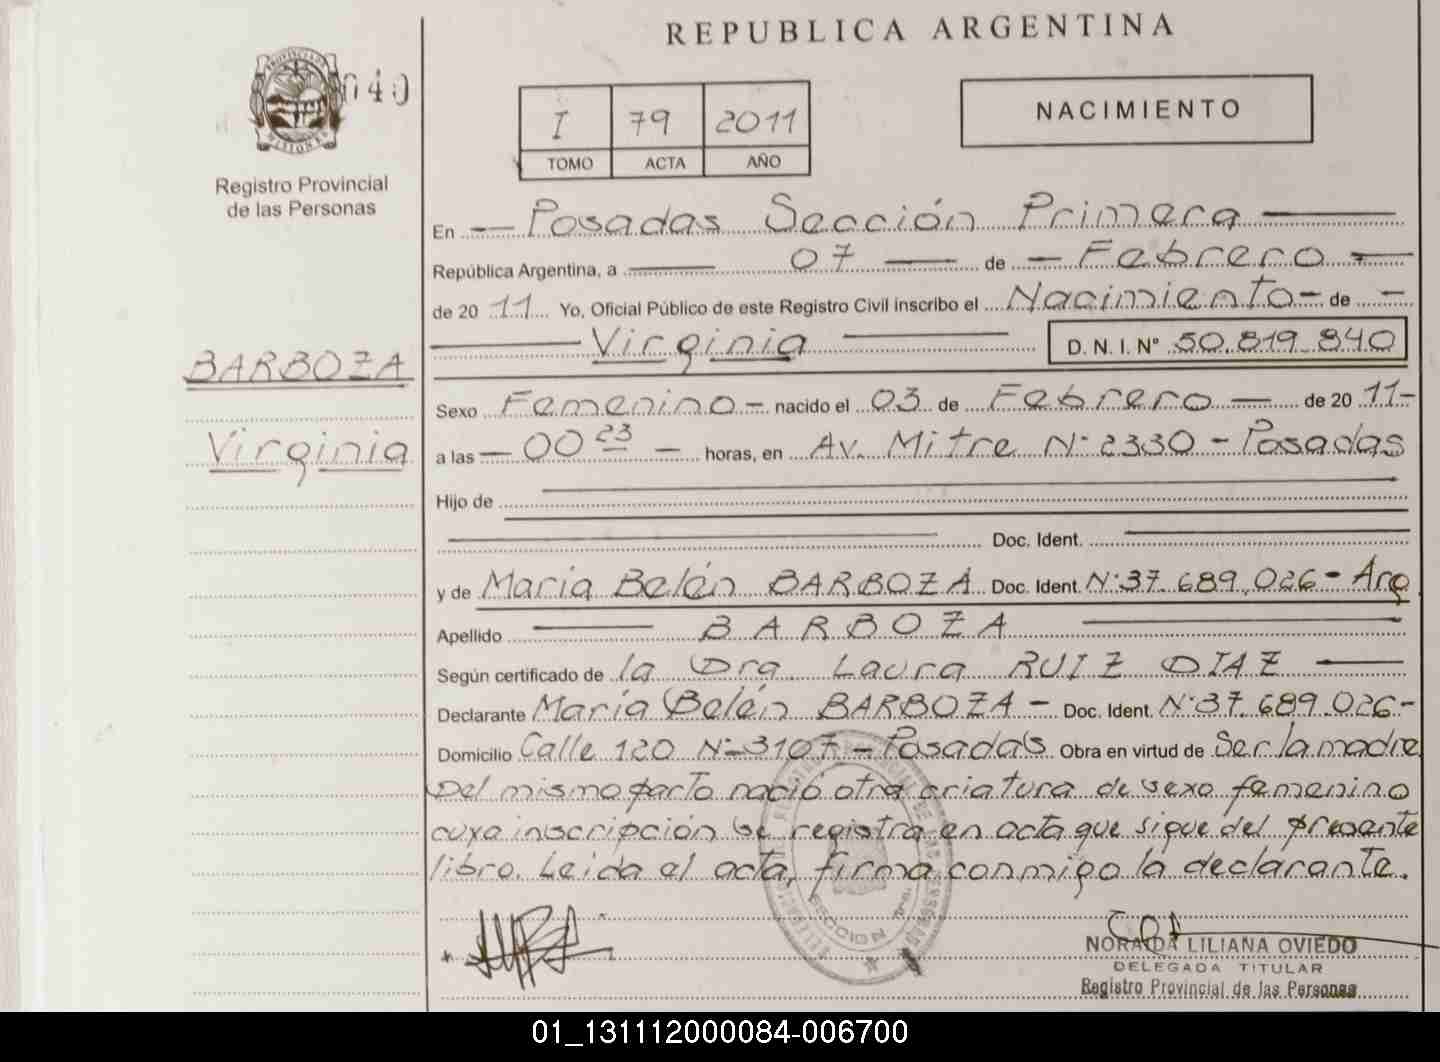 REPUBLICA ARGENTINA
PROVINCIA DE MISIONES
040
Registro Provincial
de las Personas
I 79 2011
TOMO ACTA AÑO
NACIMIENTO
En — Posadas Sección Primera —
República Argentina, a — 07 — de — Febrero —
de 2011 Yo, Oficial Público de este Registro Civil inscribo el Nacimiento - de -
— Virginia — D. N. I. N° 50.819.840
BARBOZA
Virginia
Sexo Femenino - nacido el 03 de Febrero — de 2011-
a las — 00 23 — horas, en Av. Mitre N: 2330 - Posadas
Hijo de
Doc. Ident.
y de Maria Belén BARBOZA Doc. Ident. N:37.689.026- Arg
Apellido — BARBOZA —
Según certificado de la Dra. Laura RUIZ DIAZ —
Declarante María Belén BARBOZA - Doc. Ident. N:37.689.026-
Domicilio Calle 120 N:-3107 - Posadas Obra en virtud de Ser la madre
Del mismo parto nació otra criatura de sexo femenino
cuya inscripción se registra en acta que sigue del presente
libro. Leida el acta, firma conmigo la declarante.
NORAIDA LILIANA OVIEDO
DELEGADA TITULAR
Registro Provincial de las Personas
01_131112000084-006700